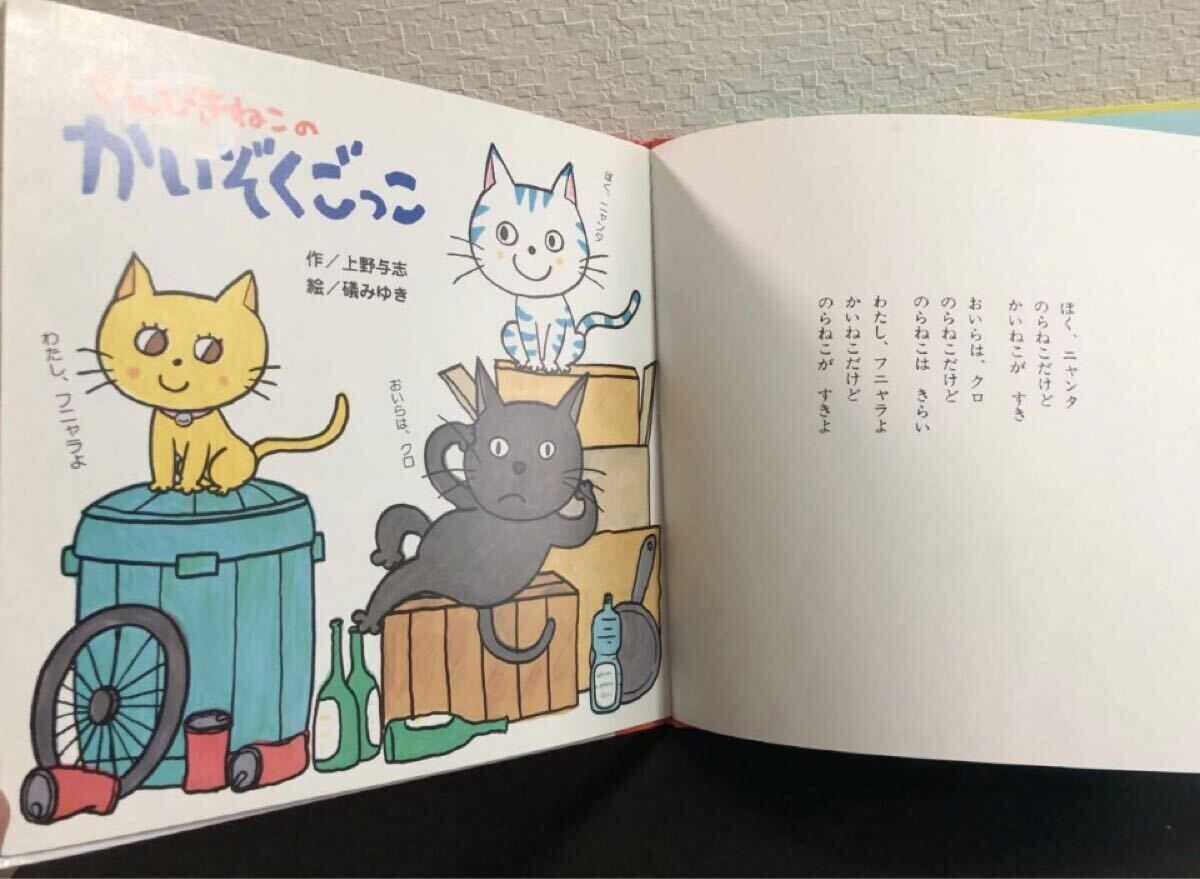 さんびきねこの
かいぞくごっこ
作／上野与志
絵／礒みゆき
ぼく、ニャンタ
わたし、フニャラよ
おいらは、クロ
ぼく、ニャンタ
のらねこだけど
かいねこが　すき
おいらは、クロ
のらねこだけど
のらねこは　きらい
わたし、フニャラよ
かいねこだけど
のらねこが　すきよ